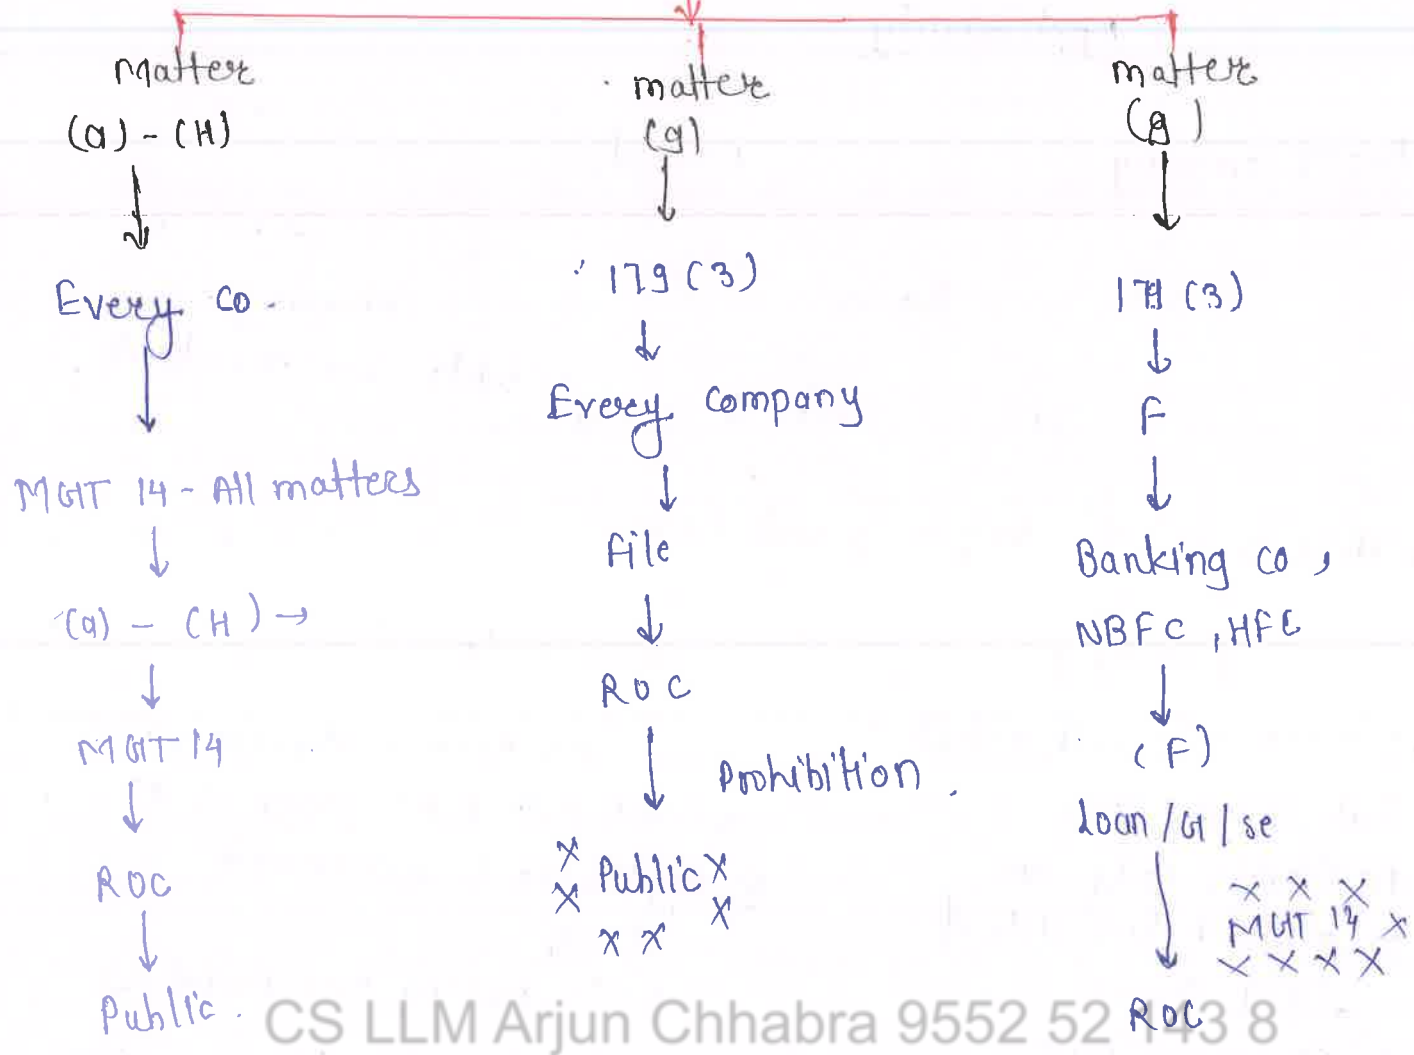 Matter
(a) - (H)
Every co.
MGT 14 - All matters
(a) - (H) →
MGT 14
ROC
Public.
matter
(g)
179 (3)
Every company
File
ROC
Prohibition.
x Public x
x x
x x
matter
(g)
179 (3)
F
Banking co,
NBFC, HFC
(F)
Loan / G / se
x x x
MGT 14 x
x x x x
ROC
CS LLM Arjun Chhabra 9552 52 143 8